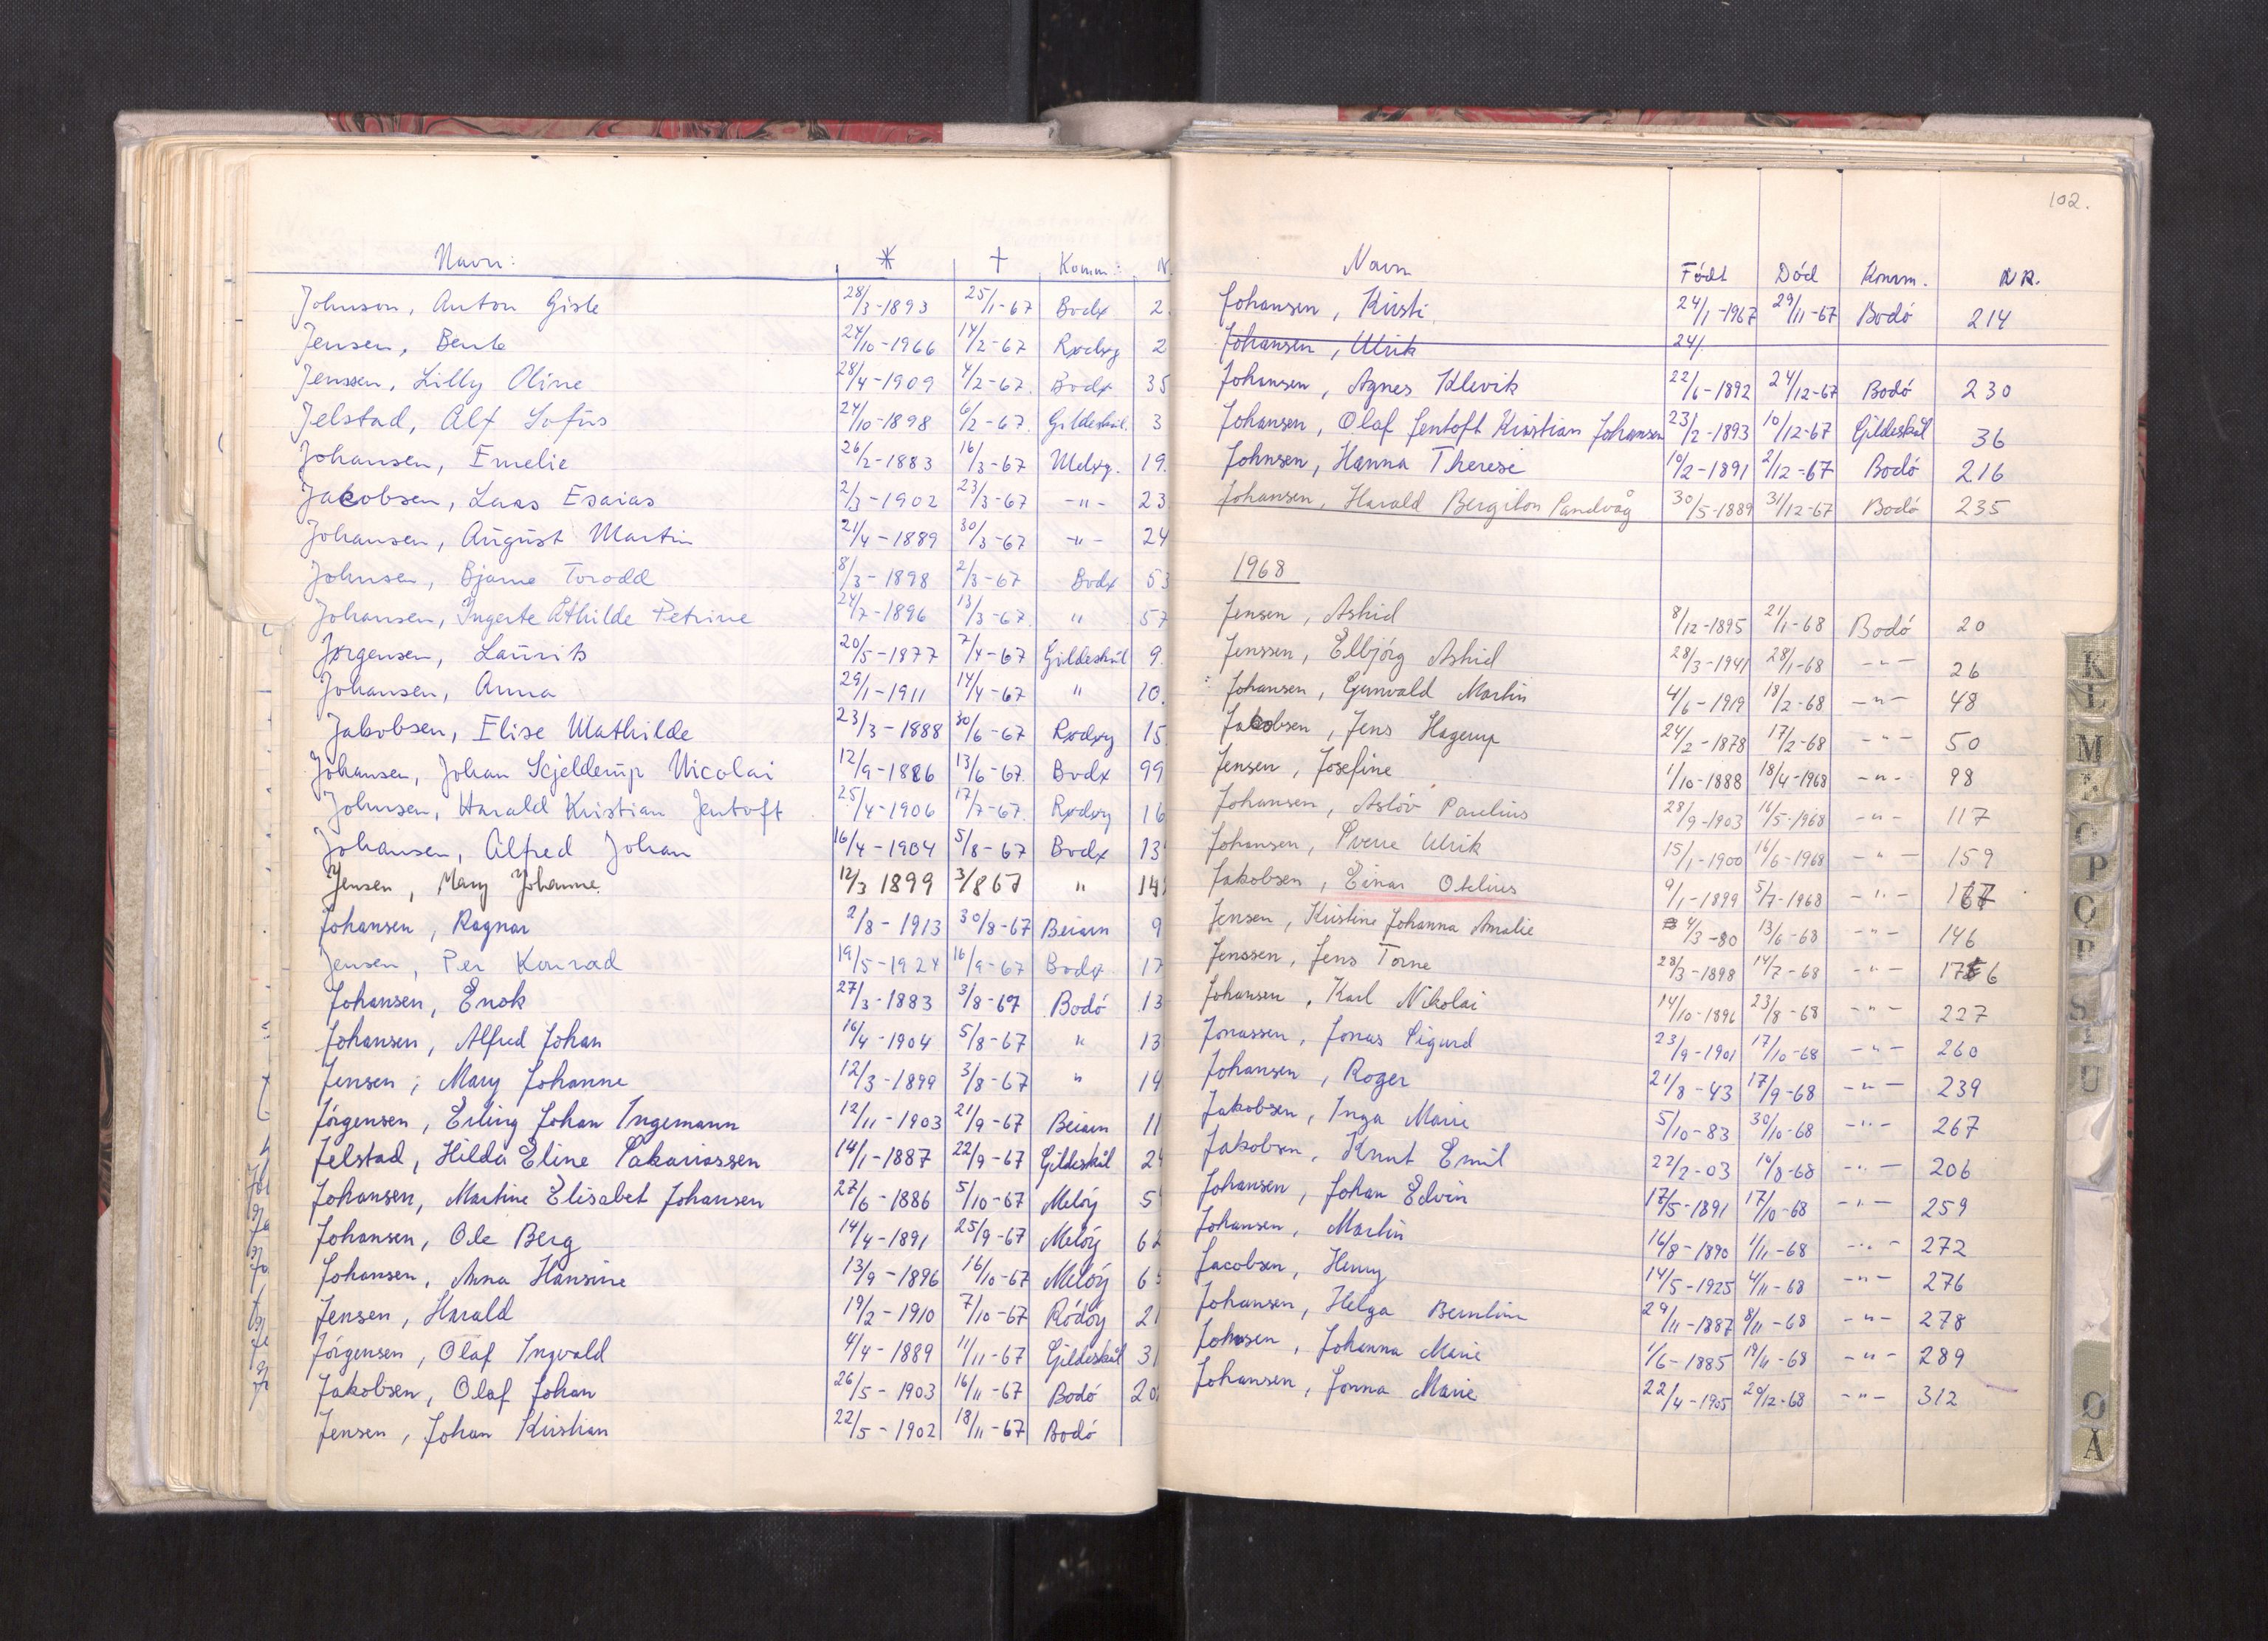 Navn: * † Komm.: N
Johnson, Anton Gisle 28/3-1893 25/1-67 Bodø 2
Jensen, Bente 24/10-1966 14/2-67 Rødøy 2
Jenssen, Lilly Oline 28/4-1909 4/2-67. Bodø 35
Jelstad, Alf Sofus 24/10-1898 6/2-67. Gildeskål. 3
Johansen, Emelie 26/2-1883 16/3-67 Meløy. 19.
Jakobsen, Laas Esaias 2/3-1902 23/3-67 -"- 23
Johansen, August Martin 21/4-1889 30/3-67 -"- 24
Johnsen, Bjarne Torodd 8/3-1898 2/3-67 Bodø 53
Johansen, Ingerte Athilde Petrine 24/7-1896 13/3-67. " 57
Jørgensen, Laurits 20/5-1877 7/4-67 Gildeskål 9.
Johansen, Anna 29/1-1911 14/4-67 " 10.
Jakobsen, Elise Mathilde 23/3-1888 30/6-67 Rødøy 15
Johansen, Johan Scjelderup Nicolai 12/9-1886 13/6-67. Bodø 99
Johnsen, Harald Kristian Jentoft 25/4-1906 17/7-67. Rødøy 16
Johansen, Alfred Johan 16/4-1904 5/8-67 Bodø 13
Jensen, Mary Johanne. 12/3 1899 3/8 67 " 14
Johansen, Ragnar 2/8-1913 30/8-67 Beiarn 9
Jensen, Per Konrad 19/5-1924 16/9-67 Bodø 17
Johansen, Enok 27/3-1883 3/8-67 Bodó 13
Johansen, Alfred Johan 16/4-1904 5/8-67 " 13
Jensen, Mary Johanne 12/3-1899 3/8-67 " 14
Jórgensen, Erling Johan Ingemann 12/11-1903 21/9-67 Beiarn 11
Jelstad, Hilda Eline Sakariassen 14/1-1887 22/9-67 Gildeskål 24
Johansen, Martine Elisabet Johansen 27/6-1886 5/10-67 Melóy 5
Johansen, Ole Berg 14/4-1891 25/9-67 Melóy 62
Johansen, Anna Hansine 13/9-1896 16/10-67 Melóy 65
Jensen, Harald 19/2-1910 7/10-67 Ródóy 21
Jórgensen, Olaf Ingvald 4/4-1889 11/11-67 Gildeskål 31
Jakobsen, Olaf Johan 26/5-1903 16/11-67 Bodó 20
Jensen, Johan Kristian 22/5-1902 18/11-67 Bodó
102.
Navn Födt Död Komm. NR.
Johansen, Kirsti 24/1-1967 29/11-67 Bodó 214
Johansen, Ulrik 24/
Johansen, Agnes Klevik 22/6-1892 24/12-67 Bodó 230
Johansen, Olaf Jentoft Kristian Johansen 23/2-1893 10/12-67 Gildeskål 36
Johnsen, Hanna Therese 10/2-1891 2/12-67 Bodó 216
Johansen, Harald Bergiton Sandvåg 30/5-1889 31/12-67 Bodó 235
1968
Jensen, Astrid 8/12-1895 21/1-68 Bodó 20
Jenssen, Elbjórg Astrid 28/3-1941 28/1-68 -"- 26
Johansen, Gunvald Martin 4/6-1919 18/2-68 -"- 48
Jakobsen, Jens Hagerup 24/2-1878 17/2-68 -"- 50
Jensen, Josefine 1/10-1888 18/4-1968 -"- 98
Johansen, Aslóv Paulius 28/9-1903 16/5-1968 -"- 117
Johansen, Sverre Ulrik 15/1-1900 16/6-1968 -"- 159
Jakobsen, Einar Otelius 9/1-1899 5/7-1968 -"- 167
Jensen, Kristine Johanna Amalie 4/3-80 13/6-68 -"- 146
Jenssen, Jens Torne 28/3-1898 14/7-68 -"- 176
Johansen, Karl Nikolai 14/10-1896 23/8-68 -"- 227
Jonassen, Jonas Sigurd 23/9-1901 17/10-68 -"- 260
Johansen, Roger 21/8-43 17/9-68 -"- 239
Jakobsen, Inga Marie 5/10-83 30/10-68 -"- 267
Jakobsen, Knut Emil 22/2-03 10/8-68 -"- 206
Johansen, Johan Edvin 17/5-1891 17/10-68 -"- 259
Johansen, Martin 16/8-1890 1/11-68 -"- 272
Jacobsen, Henry 14/5-1925 4/11-68 -"- 276
Johansen, Helga Berntine 29/11-1887 8/11-68 -"- 278
Johnsen, Johanna Marie 1/6-1885 19/11-68 -"- 289
Johansen, Jonna Marie 22/4-1905 20/12-68 -"- 312
K
L
M
O
P
R
S
U
Ø
Å